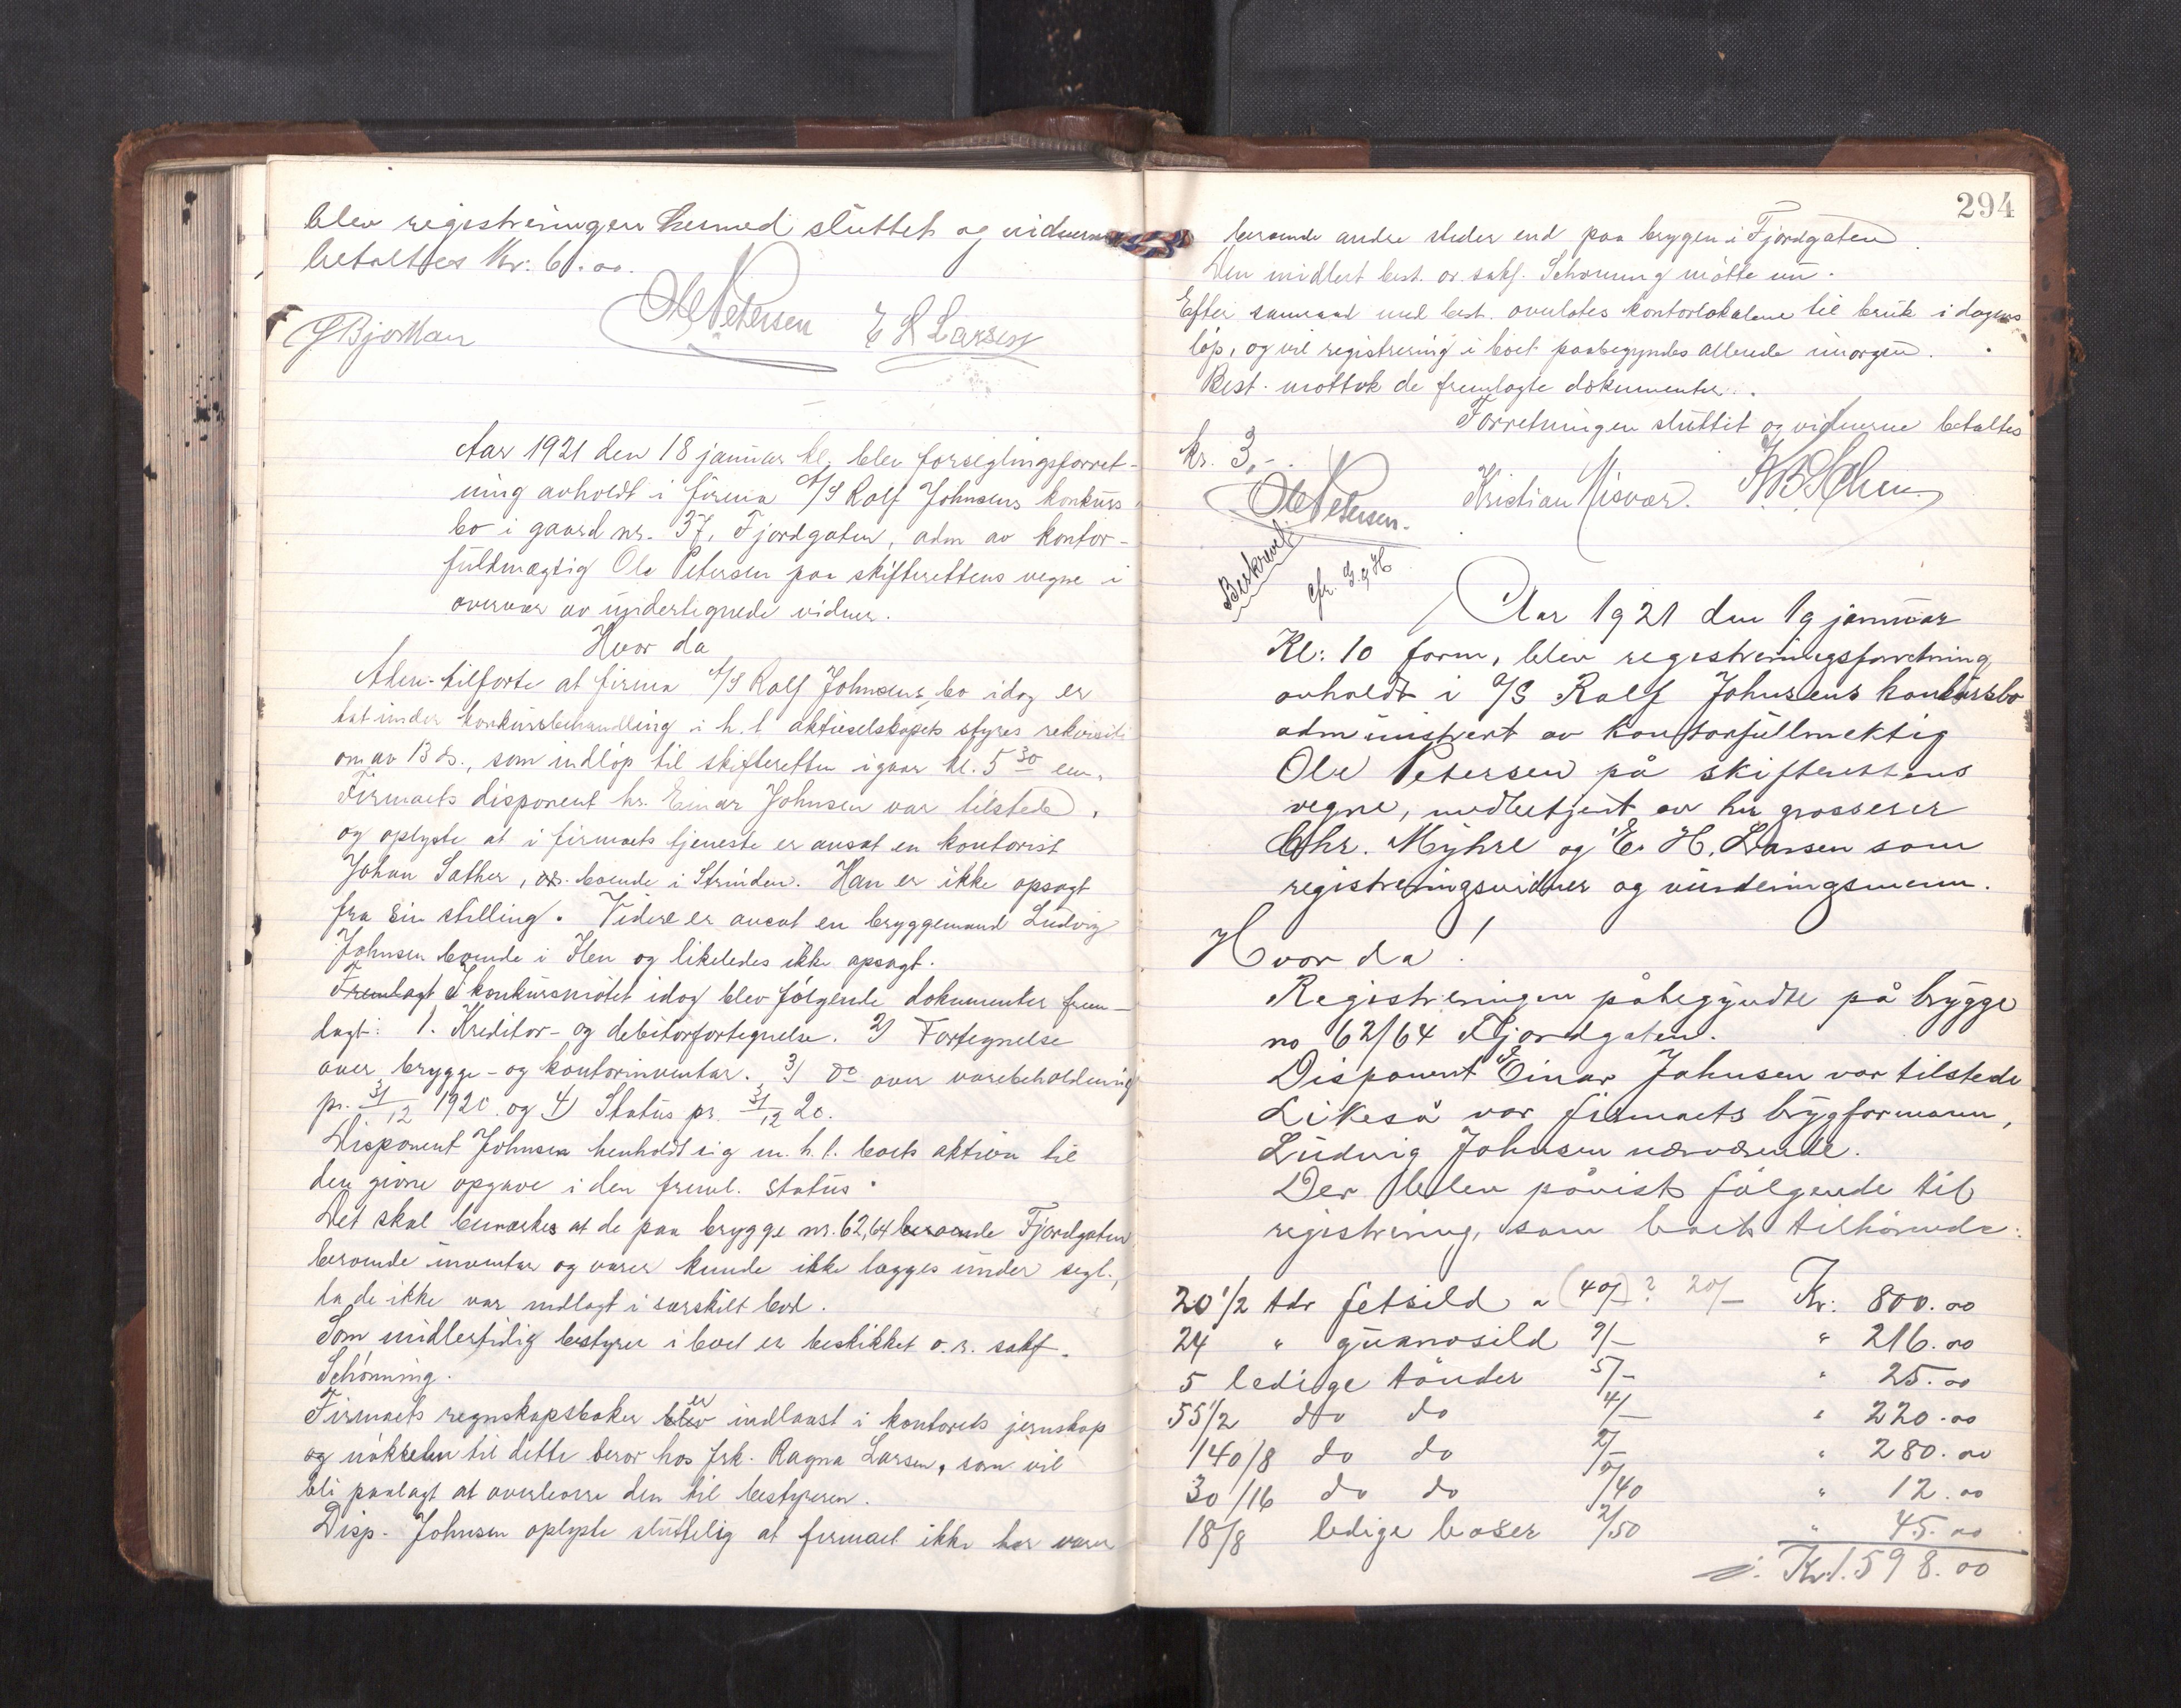 blev registreringen hermed sluttet og vidnerne
betaltes Kr: 6.00.
Ole Petersen E H Larsen
Aar 1921 den 18 januar kl. blev forseglingsforret-
ning avholdt i firma A/S Rolf Johnsens konkurs
bo i gaard nr. 37, Fjordgaten, adm av kontor-
fuldmægtig Ole Petersen paa skifterettens vegne i
overvær av undertegnede vidner.
Hvor da
Adm. tilførte at firma A/S Rolf Johnsens bo idag er
tat under konkursbehandling i h. t aktieselskapets styres rekvisiti
on av 13 ds., som indløp til skifteretten igaar kl. 5 30 em.
Firmaets disponent hr. Einar Johnsen var tilstede,
og oplyste at i firmaets tjeneste er ansat en kontorist
Johan Sather, boende i Strinden. Han er ikke opsagt
fra sin stilling. Videre er ansat en bryggemand Ludvig
Johnsen boende i Ilen og likeledes ikke opsagt.
Fremlagt I konkursmøtet idag blev følgende dokumenter frem-
lagt: 1. Kreditor- og debitorfortegnelse. 2) Fortegnelse
over brygge- og kontorinventar. 3) do over varebeholdning
pr. 31/12 1920 og 4) Status pr. 31/12 20.
Disponent Johnsen henholdt sig m. h. t. boets aktiva til
den givne opgave i den freml. status.
Det skal bemerkes at de paa brygge nr. 62,64 beroende Fjordgaten
beroende inventar og varer kunde ikke lægges under segl,
da de ikke var indlagt i særskilt bod.
Som midlertidig bestyrer i boet er beskikket o.r. sakf.
Schønning.
Firmaets regnskapsbøker blev er indlaast i kontorets jernskap
og nøkkelen til dette beror hos frk. Ragna Larsen, som vil
bli paalagt at overlevere den til bestyreren.
Disp. Johnsen oplyste sluttelig at firmaet ikke har varer
294
beroende andre steder end paa bryggen i Fjordgaten.
Den midlert best. or. sakf. Schønning møtte nu.
Efter samraad med best. overlates kontorlokalene til bruk i dagens
løp, og vil registrering i boet paabegyndes allerede imorgen.
Best. mottok de fremlagte dokumenter.
Forretningen sluttet og vidnerne betaltes
kr. 3,-.
Ole Petersen. Kristian Misvær.
Beskrevet
Aar 1921 den 19 januar
Kl: 10 form, blev registreringsforretning
avholdt i A/S Rolf Johnsens konkursbo
administrert av kontorfullmektig
Ole Petersen på skifterettens
vegne, medbetjent av hr grosserer
Chr. Myhre og E. H. Larsen som
registreringsvidner og vurderingsmenn.
Hvor da!
Registreringen påbegyndte på brygge
no 62/64 Fjordgaten.
Disponent Einar Johnsen var tilstede
Likeså var firmaets brygformann,
Ludvig Johnsen nærværende.
Der blev påvist følgende til
registrering, som boet tilhørende:
20 1/2 tdr fetsild a (40/-)? 20/- Kr: 800.00
24 " guanosild 9/- " 216.00
5 ledige tønder 5/- " 25.00
55 1/2 do do 4/- " 220.00
140/8 do do 2/- " 280.00
30/16 do do 0/40 " 12.00
18/8 ledige baser 2/50 " 45.00
Kr 1.598.00